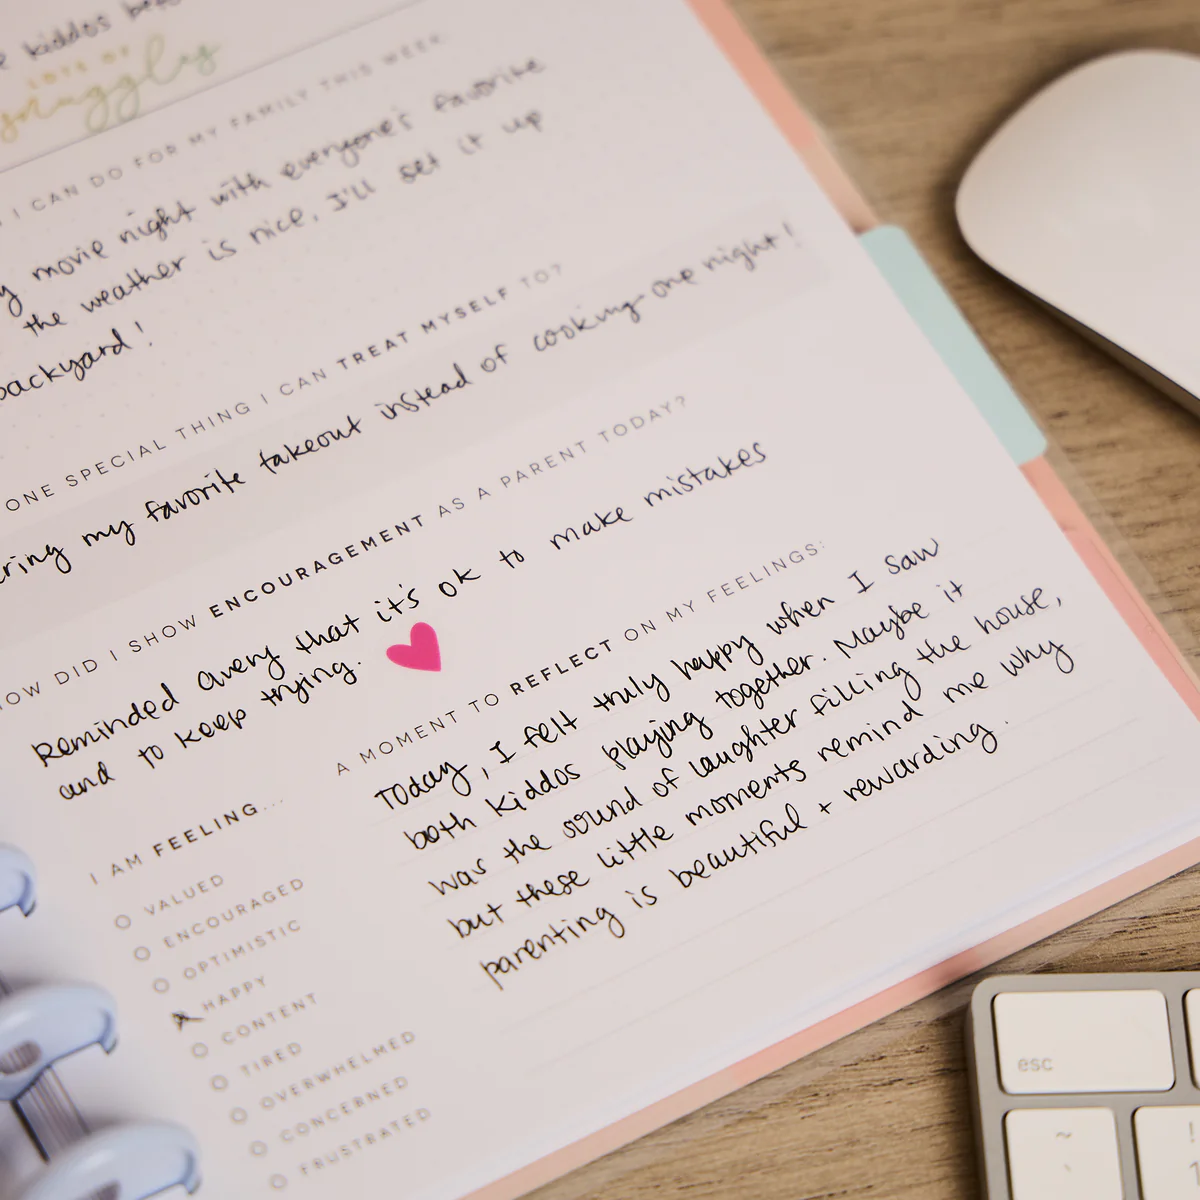 kiddos
LOTS OF
snuggles
I CAN DO FOR MY FAMILY THIS WEEK
movie night with everyone's favorite
the weather is nice, I'll set it up
backyard!
ONE SPECIAL THING I CAN TREAT MYSELF TO?
my favorite takeout instead of cooking one night!
HOW DID I SHOW ENCOURAGEMENT AS A PARENT TODAY?
Reminded avery that it's ok to make mistakes
and to keep trying.
A MOMENT TO REFLECT ON MY FEELINGS:
Today, I felt truly happy when I saw
both kiddos playing together. Maybe it
was the sound of laughter filling the house,
but these little moments remind me why
parenting is beautiful + rewarding.
I AM FEELING...
VALUED
ENCOURAGED
OPTIMISTIC
HAPPY
CONTENT
TIRED
OVERWHELMED
CONCERNED
FRUSTRATED
esc
~
`
!
1